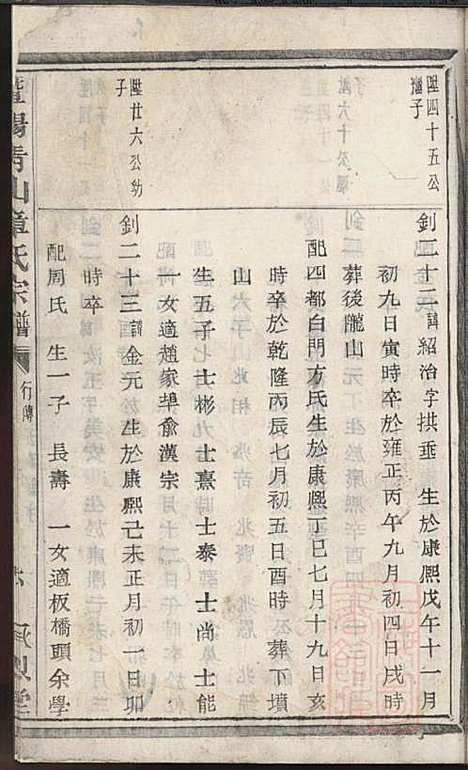 陞四十五公
繼子
釗二十二諱紹治字拱垂　生於康熙戊午十一月
初九日寅時卒於雍正丙午九月初四日戌時
葬後隴山
配四都白門方氏生於康熙丁巳七月十九日亥
時卒於乾隆丙辰七月初五日酉時　葬下墳
山
生五子士彬　士熹　士泰　士尚　士能
一女適趙家埠俞漢宗
陞廿六公幼
子
釗二十三諱金元　生於康熙己未正月初一日卯
時卒
配周氏　生一子　長壽　一女適板橋頭余學
暨陽青山章氏宗譜
行傳
承烈堂